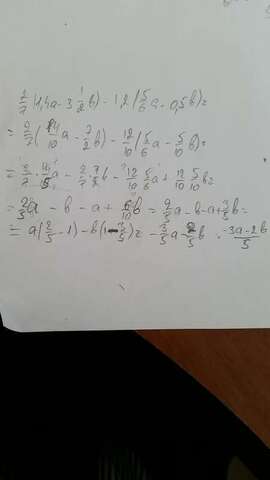 2/7(1,4a - 3 1/2 b) - 1,2(5/6 a - 0,5b) =
= 2/7(14/10 a - 7/2 b) - 12/10(5/6 a - 5/10 b) =
= 2/7 · 14/5 a - 2/7 · 7/2 b - 12/10 · 5/6 a + 12/10 · 5/10 b =
= 2/5 a - b - a + 6/10 b = 2/5 a - b - a + 3/5 b =
= a(2/5 - 1) - b(1 - 3/5) = - 3/5 a - 2/5 b = -3a-2b/5